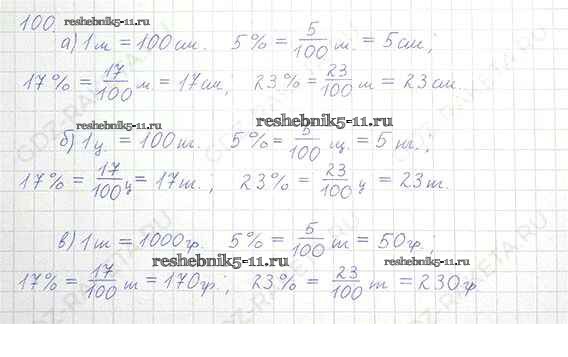 100. reshebnik5-11.ru
а) 1 м = 100 см. 5% = 5/100 м. = 5 см;
17% = 17/100 м. = 17 см; 23% = 23/100 м = 23 см.
reshebnik5-11.ru reshebnik5-11.ru
б) 1 ц. = 100 т. 5% = 5/100 ц. = 5 т.,
17% = 17/100 ц = 17 т.; 23% = 23/100 ц = 23 т.
в) 1 т = 1000 гр. 5% = 5/100 т = 50 гр,
reshebnik5-11.ru reshebnik5-11.ru
17% = 17/100 т = 170 гр.; 23% = 23/100 т = 230 гр
reshebnik5-11.ru